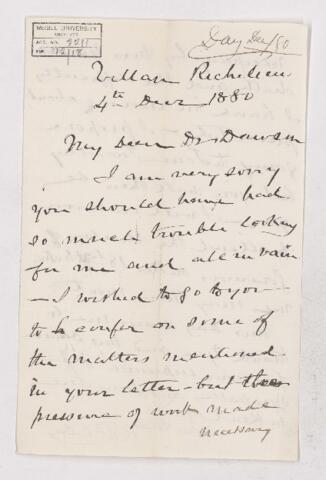 McGILL UNIVERSITY
ARCHIVES
ACC. NO. 2211
REF.
Day Dec/80
Richelieu
4th Decr 1880
My Dear Dr Dawson
I am very sorry
you should have had
so much trouble looking
for me and all in vain
— I wished to go to you
to confer on some of
the matters mentioned
in your letter — but the
pressure of work made
necessary